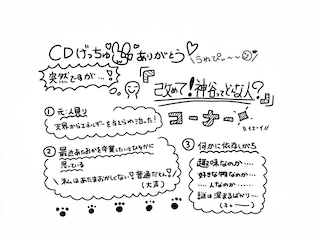 CDげっちゅ ありがとう♡
うれぴ〜〜〜
突然ですが…
『改めて!神谷ってどんな人?』
コーナー
イエーイ!!
① 元・人見り
天界からエネルギーを与えられ治った!
② 最近あたおかを卒業したいとひそかに
思っている
私はあたまおかしくない!!普通だもん!!
(大声)
③ 何かに依存しがち
趣味なのか…
好きな物なのか…
人なのか……
謎は深まるばかり…